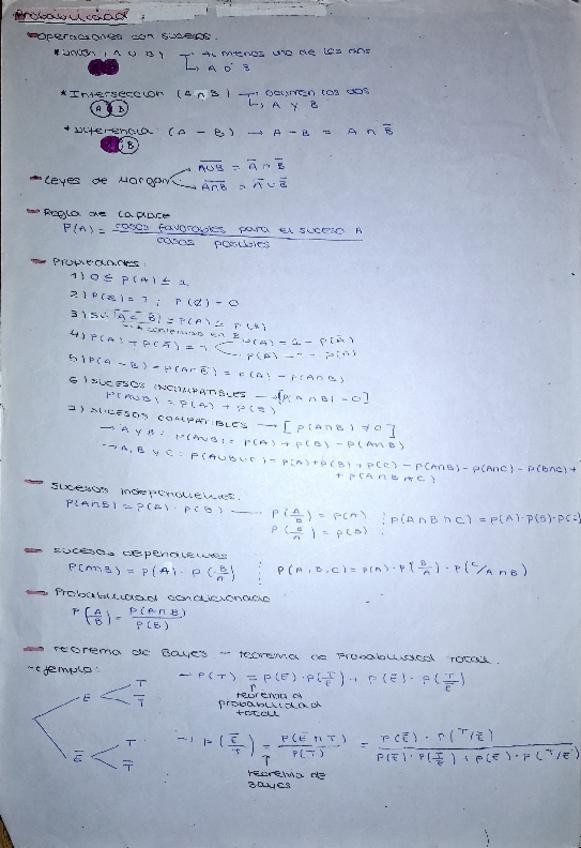 Probabilidad
Operaciones con sucesos.
* Unión (A ∪ B) → Al menos uno de los dos
↳ A o B
* Intersección (A ∩ B) → Ocurren los dos
↳ A y B
A B
* Diferencia: (A - B) → A - B = A ∩ B̅
B
Leyes de Morgan
A∪B̅ = A̅ ∩ B̅
A∩B̅ = A̅ ∪ B̅
Regla de Laplace
P(A) = casos favorables para el suceso A
casos posibles
Propiedades:
1) 0 ≤ P(A) ≤ 1
2) P(E) = 1 ; P(∅) = 0
3) Si A ⊂ B = P(A) ≤
A contenido en B
4) P(A) + P(A̅) = 1 P(A) = 1 - P(A̅)
P(A̅) = 1 - P(A)
5) P(A - B) = P(A∩B̅) = P(A) - P(A∩B)
6) Sucesos incompatibles → [P(A∩B) = 0]
P(A∪B) = P(A) + P(B)
7) Sucesos compatibles → [P(A∩B) ≠ 0]
→ A y B: P(A∪B) = P(A) + P(B) - P(A∩B)
→ A, B y C: P(A∪B∪C) = P(A)+P(B)+P(C) - P(A∩B) - P(A∩C) - P(B∩C) +
+ P(A∩B∩C)
Sucesos independientes.
P(A∩B) = P(A) · P(B) — P(A/B) = P(A) ; P(A∩B∩C) = P(A)·P(B)·P(C)
P(B/A) = P(B)
Sucesos dependientes
P(A∩B) = P(A) · P(B/A) P(A,B,C) = P(A) · P(B/A) · P(C/A∩B)
Probabilidad condicionada
P(A/B) = P(A∩B)
P(B)
Teorema de Bayes – Teorema de Probabilidad Total.
- ejemplo:
E T T̅
E̅ T T̅
→ P(T) = P(E)·P(T/E) + P(E̅)·P(T/E̅)
teorema d
probabilidad
total
→ P(E̅/T) = P(E̅∩T)/P(T) = P(E̅)·P(T/E̅)
P(E)·P(T/E) + P(E̅)·P(T/E̅)
teorema de
Bayes